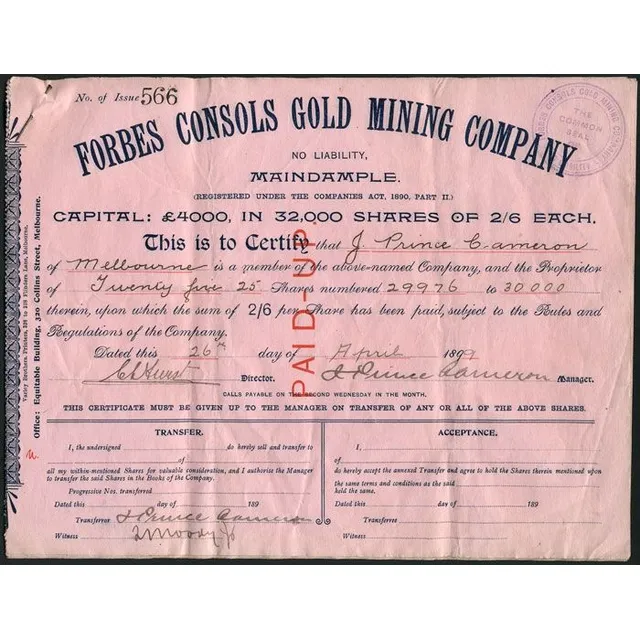 No. of Issue 566
FORBES CONSOLS GOLD MINING COMPANY
NO LIABILITY,
MAINDAMPLE.
(REGISTERED UNDER THE COMPANIES ACT, 1890, PART II.)
CAPITAL: £4000, IN 32,000 SHARES OF 2/6 EACH.
This is to Certify that J. Prince Cameron
of Melbourne is a member of the above-named Company, and the Proprietor
of Twenty five 25 Shares numbered 29976 to 30000
therein, upon which the sum of 2/6 per Share has been paid, subject to the Rules and
Regulations of the Company.
Dated this 26th day of April 1899
Director. J Prince Cameron Manager.
CALLS PAYABLE ON THE SECOND WEDNESDAY IN THE MONTH.
THIS CERTIFICATE MUST BE GIVEN UP TO THE MANAGER ON TRANSFER OF ANY OR ALL OF THE ABOVE SHARES.
PAID-UP.
THE COMMON SEAL
Office: Equitable Building, 320 Collins Street, Melbourne.
TRANSFER.
I, the undersigned do hereby sell and transfer to
of
all my within-mentioned Shares for valuable consideration, and I authorise the Manager
to transfer the said Shares in the Books of the Company.
Progressive Nos. transferred
Dated this day of 189
Transferror J Prince Cameron
Witness
ACCEPTANCE.
I,
of
do hereby accept the annexed Transfer and agree to hold the Shares therein mentioned upon
the same terms and conditions as the said
held the same.
Dated this day of 189
Transferree
Witness